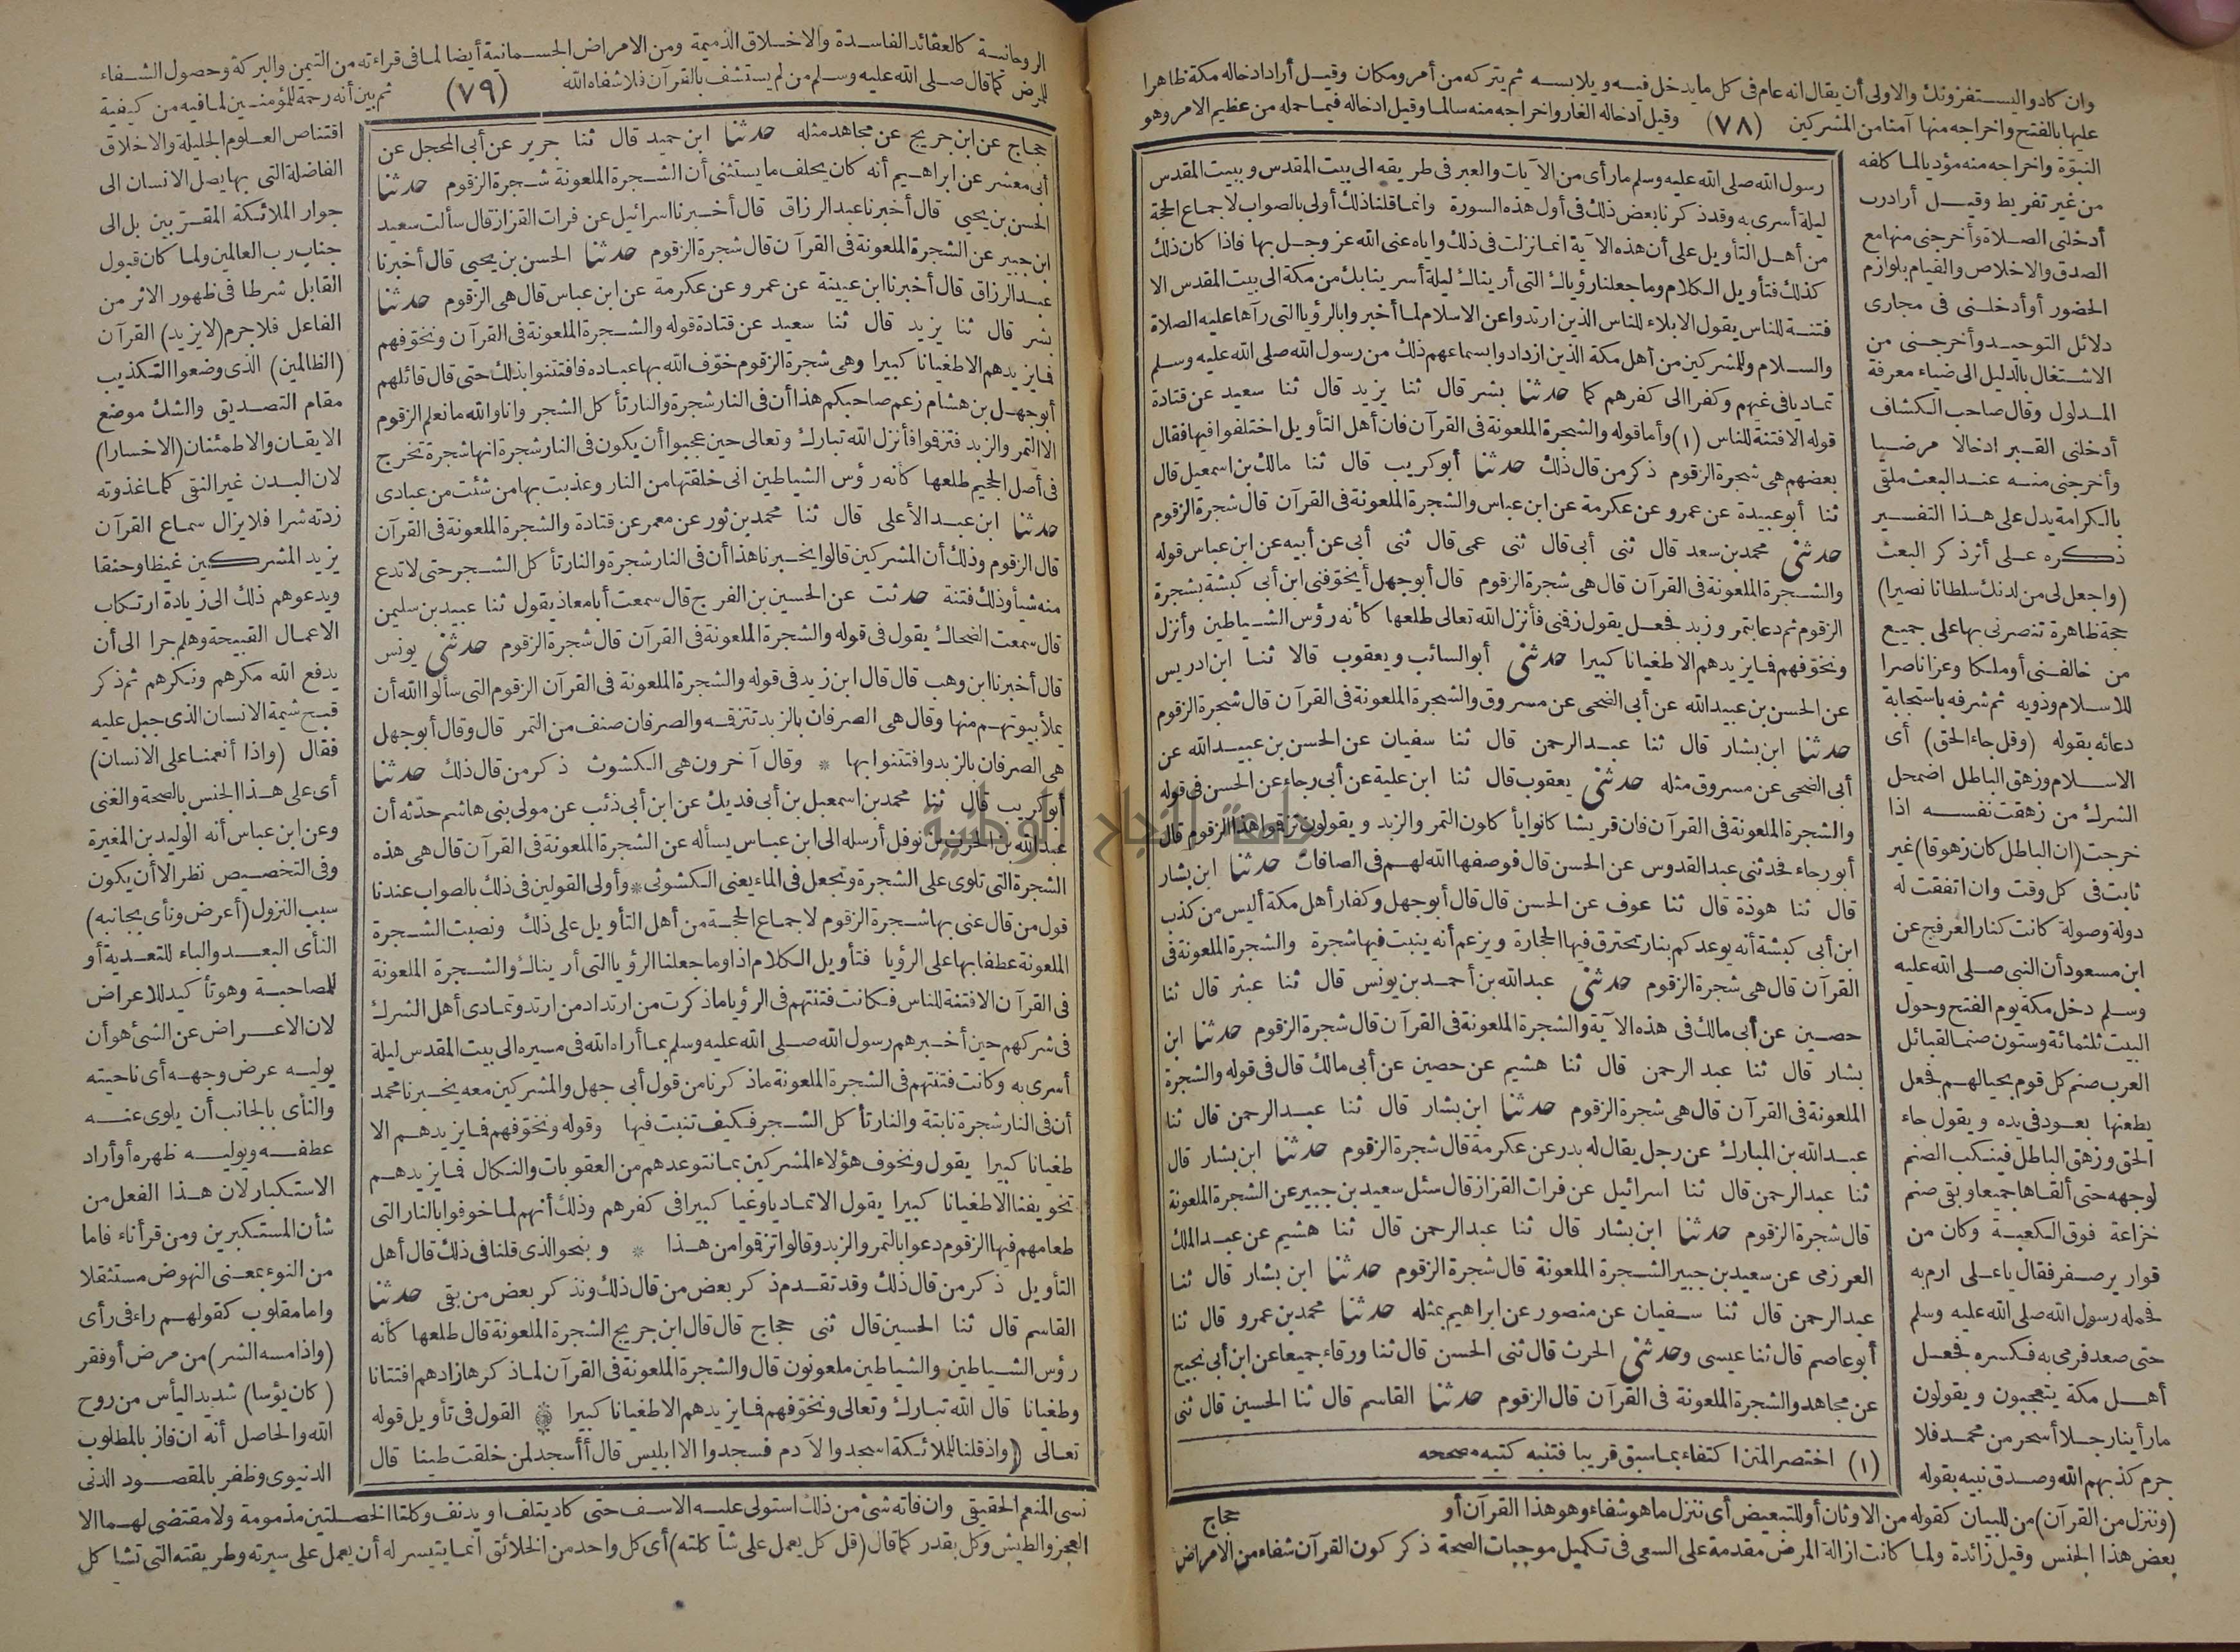 وان كادوا ليستفزونك والاولى أن يقال انه عام فى كل ما يدخل فيه ويلابسه ثم يتركه من أمر ومكان وقيل أراد ادخاله مكة ظاهرا
عليها بالفتح واخراجه منها آمنا من المشركين (٧٨) وقيل ادخاله الغار واخراجه منه سالما وقيل ادخاله فيما حمله من عظيم الامر وهو
النبوة واخراجه منه مؤديا لما كلفه
من غير تفريط وقيل أراد رب
أدخلنى الصلاة وأخرجنى منها مع
الصدق والاخلاص والقيام بلوازم
الحضور أو أدخلنى فى مجارى
دلائل التوحيد وأخرجنى من
الاشتغال بالدليل الى ضياء معرفة
المدلول وقال صاحب الكشاف
أدخلنى القبر ادخالا مرضيا
وأخرجنى منه عند البعث ملقى
بالكرامة يدل على هذا التفسير
ذكره على أثر ذكر البعث
(واجعل لى من لدنك سلطانا نصيرا)
حجة ظاهرة تنصرنى بها على جميع
من خالفنى أو ملكا وعزا ناصرا
للاسلام وذويه ثم شرفه باستجابة
دعائه بقوله (وقل جاء الحق) أى
الاسلام وزهق الباطل اضمحل
الشرك من زهقت نفسه اذا
خرجت (ان الباطل كان زهوقا) غير
ثابت فى كل وقت وان اتفقت له
دولة وصولة كانت كنار العرفج عن
ابن مسعود أن النبى صلى الله عليه
وسلم دخل مكة يوم الفتح وحول
البيت ثلثمائة وستون صنما لقبائل
العرب صنم كل قوم بحيالهم فجعل
يطعنها بعود فى يده ويقول جاء
الحق وزهق الباطل فينكب الصنم
لوجهه حتى ألقاها جميعا وبقى صنم
خزاعة فوق الكعبة وكان من
قوارير صفر فقال يا على ارم به
فحمله رسول الله صلى الله عليه وسلم
حتى صعد فرمى به فكسره فجعل
أهل مكة يتعجبون ويقولون
ما رأينا رجلا أسحر من محمد فلا
جرم كذبهم الله وصدق نبيه بقوله
رسول الله صلى الله عليه وسلم ما رأى من الآيات والعبر فى طريقه الى بيت المقدس وببيت المقدس
ليلة أسرى به وقد ذكرنا بعض ذلك فى أول هذه السورة وانما قلنا ذلك أولى بالصواب لاجماع الحجة
من أهل التأويل على أن هذه الآية انما نزلت فى ذلك واياه عنى الله عز وجل بها فاذا كان ذلك
كذلك فتأويل الكلام وما جعلنا رؤياك التى أريناك ليلة أسرينا بك من مكة الى بيت المقدس الا
فتنة للناس يقول الا بلاء للناس الذين ارتدوا عن الاسلام لما أخبروا بالرؤيا التى رآها عليه الصلاة
والسلام وللمشركين من أهل مكة الذين ازدادوا بسماعهم ذلك من رسول الله صلى الله عليه وسلم
تماديا فى غيهم وكفرا الى كفرهم كما حدثنا بشر قال ثنا يزيد قال ثنا سعيد عن قتادة
قوله الا فتنة للناس (١) وأما قوله والشجرة الملعونة فى القرآن فان أهل التأويل اختلفوا فيها فقال
بعضهم هى شجرة الزقوم ذكر من قال ذلك حدثنا أبو كريب قال ثنا مالك بن اسمعيل قال
ثنا أبو عبيدة عن عمرو عن عكرمة عن ابن عباس والشجرة الملعونة فى القرآن قال شجرة الزقوم
حدثنى محمد بن سعد قال ثنى أبى قال ثنى عمى قال ثنى أبى عن أبيه عن ابن عباس قوله
والشجرة الملعونة فى القرآن قال هى شجرة الزقوم قال أبو جهل أيخوفنى ابن أبى كبشة بشجرة
الزقوم ثم دعا بتمر وزبد فجعل يقول زقنى فأنزل الله تعالى طلعها كأنه رؤس الشياطين وأنزل
ونخوفهم فما يزيدهم الا طغيانا كبيرا حدثنى أبو السائب ويعقوب قالا ثنا ابن ادريس
عن الحسن بن عبيد الله عن أبى الضحى عن مسروق والشجرة الملعونة فى القرآن قال شجرة الزقوم
حدثنا ابن بشار قال ثنا عبد الرحمن قال ثنا سفيان عن الحسن بن عبيد الله عن
أبى الضحى عن مسروق مثله حدثنى يعقوب قال ثنا ابن علية عن أبى رجاء عن الحسن فى قوله
والشجرة الملعونة فى القرآن فان قريشا كانوا يأكلون التمر والزبد ويقولون تزقموا هذا الزقوم قال
أبو رجاء فحدثنى عبد القدوس عن الحسن قال فوصفها الله لهم فى الصافات حدثنا ابن بشار
قال ثنا هوذة قال ثنا عوف عن الحسن قال قال أبو جهل وكفار أهل مكة أليس من كذب
ابن أبى كبشة أنه يوعدكم بنار تحترق فيها الحجارة ويزعم أنه ينبت فيها شجرة والشجرة الملعونة فى
القرآن قال هى شجرة الزقوم حدثنى عبد الله بن أحمد بن يونس قال ثنا عبثر قال ثنا
حصين عن أبى مالك فى هذه الآية والشجرة الملعونة فى القرآن قال شجرة الزقوم حدثنا ابن
بشار قال ثنا عبد الرحمن قال ثنا هشيم عن حصين عن أبى مالك قال فى قوله والشجرة
الملعونة فى القرآن قال هى شجرة الزقوم حدثنا ابن بشار قال ثنا عبد الرحمن قال ثنا
عبد الله بن المبارك عن رجل يقال له بدر عن عكرمة قال شجرة الزقوم حدثنا ابن بشار قال
ثنا عبد الرحمن قال ثنا اسرائيل عن فرات القزاز قال سئل سعيد بن جبير عن الشجرة الملعونة
قال شجرة الزقوم حدثنا ابن بشار قال ثنا عبد الرحمن قال ثنا هشيم عن عبد الملك
العرزمى عن سعيد بن جبير الشجرة الملعونة قال شجرة الزقوم حدثنا ابن بشار قال ثنا
عبد الرحمن قال ثنا سفيان عن منصور عن ابراهيم بمثله حدثنا محمد بن عمرو قال ثنا
أبو عاصم قال ثنا عيسى وحدثنى الحرث قال ثنى الحسن قال ثنا ورقاء جميعا عن ابن أبى نجيح
عن مجاهد والشجرة الملعونة فى القرآن قال الزقوم حدثنا القاسم قال ثنا الحسين قال ثنى
(١) اختصر المتن اكتفاء بما سبق قريبا فتنبه كتبه مصححه
(وننزل من القرآن) من للبيان كقوله من الاوثان أو للتبعيض أى ننزل ما هو شفاء وهو هذا القرآن أو
حجاج
بعض هذا الجنس وقيل زائدة ولما كانت ازالة المرض مقدمة على السعى فى تكميل موجبات الصحة ذكر كون القرآن شفاء من الأمراض
الروحانية كالعقائد الفاسدة والاخلاق الذميمة ومن الامراض الجسمانية أيضا لما فى قراءته من التيمن والبركة وحصول الشفاء
للمرض كما قال صلى الله عليه وسلم من لم يستشف بالقرآن فلا شفاه الله (٧٩) ثم بين أنه رحمة للمؤمنين لما فيه من كيفية
حجاج عن ابن جريج عن مجاهد مثله حدثنا ابن حميد قال ثنا جرير عن أبى المحجل عن
أبى معشر عن ابراهيم أنه كان يحلف ما يستثنى أن الشجرة الملعونة شجرة الزقوم حدثنا
الحسن بن يحيى قال أخبرنا عبد الرزاق قال أخبرنا اسرائيل عن فرات القزاز قال سألت سعيد
ابن جبير عن الشجرة الملعونة فى القرآن قال شجرة الزقوم حدثنا الحسن بن يحيى قال أخبرنا
عبد الرزاق قال أخبرنا ابن عيينة عن عمرو عن عكرمة عن ابن عباس قال هى الزقوم حدثنا
بشر قال ثنا يزيد قال ثنا سعيد عن قتادة قوله والشجرة الملعونة فى القرآن ونخوفهم
فما يزيدهم الا طغيانا كبيرا وهى شجرة الزقوم خوف الله بها عباده فافتتنوا بذلك حتى قال قائلهم
أبو جهل بن هشام زعم صاحبكم هذا أن فى النار شجرة والنار تأكل الشجر وانا والله ما نعلم الزقوم
الا التمر والزبد فتزقموا فأنزل الله تبارك وتعالى حين عجبوا أن يكون فى النار شجرة انها شجرة تخرج
فى أصل الجحيم طلعها كأنه رؤس الشياطين انى خلقتها من النار وعذبت بها من شئت من عبادى
حدثنا ابن عبد الأعلى قال ثنا محمد بن ثور عن معمر عن قتادة والشجرة الملعونة فى القرآن
قال الزقوم وذلك أن المشركين قالوا يخبرنا هذا أن فى النار شجرة والنار تأكل الشجر حتى لا تدع
منه شيأ وذلك فتنة حدثت عن الحسين بن الفرج قال سمعت أبا معاذ يقول ثنا عبيد بن سليمن
قال سمعت الضحاك يقول فى قوله والشجرة الملعونة فى القرآن قال شجرة الزقوم حدثنى يونس
قال أخبرنا ابن وهب قال قال ابن زيد فى قوله والشجرة الملعونة فى القرآن الزقوم التى سألوا الله أن
يملأ بيوتهم منها وقال هى الصرفان بالزبد تتزقمه والصرفان صنف من التمر قال وقال أبو جهل
هى الصرفان بالزبد وافتتنوا بها * وقال آخرون هى الكشوث ذكر من قال ذلك حدثنا
أبو كريب قال ثنا محمد بن اسمعيل بن أبى فديك عن ابن أبى ذئب عن مولى بنى هاشم حدثه أن
عبد الله بن الحرث بن نوفل أرسله الى ابن عباس يسأله عن الشجرة الملعونة فى القرآن قال هى هذه
الشجرة التى تلوى على الشجرة وتجعل فى الماء يعنى الكشوثى * وأولى القولين فى ذلك بالصواب عندنا
قول من قال عنى بها شجرة الزقوم لاجماع الحجة من أهل التأويل على ذلك ونصبت الشجرة
الملعونة عطفا بها على الرؤيا فتأويل الكلام اذا وما جعلنا الرؤيا التى أريناك والشجرة الملعونة
فى القرآن الا فتنة للناس فكانت فتنتهم فى الرؤيا ما ذكرت من ارتداد من ارتد وتمادى أهل الشرك
فى شركهم حين أخبرهم رسول الله صلى الله عليه وسلم بما أراه الله فى مسيره الى بيت المقدس ليلة
أسرى به وكانت فتنتهم فى الشجرة الملعونة ما ذكرنا من قول أبى جهل والمشركين معه يخبرنا محمد
أن فى النار شجرة نابتة والنار تأكل الشجر فكيف تنبت فيها وقوله ونخوفهم فما يزيدهم الا
طغيانا كبيرا يقول ونخوف هؤلاء المشركين بما نتوعدهم من العقوبات والنكال فما يزيدهم
تخويفنا الا طغيانا كبيرا يقول الا تماديا وغيا كبيرا فى كفرهم وذلك أنهم لما خوفوا بالنار التى
طعامهم فيها الزقوم دعوا بالتمر والزبد وقالوا تزقموا من هذا * وبنحو الذى قلنا فى ذلك قال أهل
التأويل ذكر من قال ذلك وقد تقدم ذكر بعض من قال ذلك ونذكر بعض من بقى حدثنا
القاسم قال ثنا الحسين قال ثنى حجاج قال قال ابن جريج الشجرة الملعونة قال طلعها كأنه
رؤس الشياطين والشياطين ملعونون قال والشجرة الملعونة فى القرآن لما ذكرها زادهم افتتانا
وطغيانا قال الله تبارك وتعالى ونخوفهم فما يزيدهم الا طغيانا كبيرا * القول فى تأويل قوله
تعالى (واذ قلنا للملائكة اسجدوا لآدم فسجدوا الا ابليس قال أأسجد لمن خلقت طينا قال
اقتناص العلوم الجليلة والاخلاق
الفاضلة التى بها يصل الانسان الى
جوار الملائكة المقربين بل الى
جناب رب العالمين ولما كان قبول
القابل شرطا فى ظهور الاثر من
الفاعل فلا جرم (لا يزيد) القرآن
(الظالمين) الذى وضعوا التكذيب
مقام التصديق والشك موضع
الايقان والاطمئنان (الا خسارا)
لان البدن غير النقى كلما غذوته
زدته شرا فلا يزال سماع القرآن
يزيد المشركين غيظا وحنقا
ويدعوهم ذلك الى زيادة ارتكاب
الاعمال القبيحة وهلم جرا الى أن
يدفع الله مكرهم ونكرهم ثم ذكر
قبح شيمة الانسان الذى جبل عليه
فقال (واذا أنعمنا على الانسان)
أى على هذا الجنس بالصحة والغنى
وعن ابن عباس أنه الوليد بن المغيرة
وفى التخصيص نظر الا أن يكون
سبب النزول (أعرض ونأى بجانبه)
النأى البعد والباء للتعدية أو
للمصاحبة وهو تأكيد للاعراض
لان الاعراض عن الشئ هو أن
يوليه عرض وجهه أى ناحيته
والنأى بالجانب أن يلوى عنه
عطفه ويوليه ظهره أو أراد
الاستكبار لان هذا الفعل من
شأن المستكبرين ومن قرأ ناء فاما
من النوء بمعنى النهوض مستثقلا
واما مقلوب كقولهم راء فى رأى
(واذا مسه الشر) من مرض أو فقر
(كان يؤسا) شديد اليأس من روح
الله والحاصل أنه ان فاز بالمطلوب
الدنيوى وظفر بالمقصود الدنى
نسى المنعم الحقيقى وان فاته شئ من ذلك استولى عليه الاسف حتى كاد يتلف أو يدنف وكلتا الخصلتين مذمومة ولا مقتضى لهما الا
العجز والطيش وكل بقدر كما قال (قل كل يعمل على شاكلته) أى كل واحد من الخلائق انما يتيسر له أن يعمل على سيرته وطريقته التى تشاكل
جامعة النجاح الوطنية